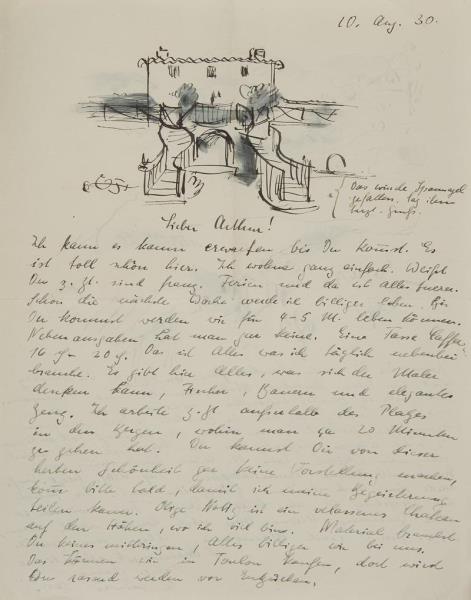 10. Aug. 30.
Das würde Spannagel
gefallen. Sag ihm
herzl. Gruß.
Lieber Arthur!
Ich kann es kaum erwarten bis Du kommst. Es
ist toll schön hier. Ich wohne ganz einfach. Weißt
Du z. Zt. sind franz. Ferien und da ist alles teurer.
Schon die nächste Woche werde ich billiger leben. Bis
Du kommst werden wir für 4-5 M. leben können.
Nebenausgaben hat man gar keine. Eine Tasse Caffee
16 ₰ - 20 ₰. Das ist Alles was ich täglich nebenbei
brauche. Es gibt hier Alles, was sich der Maler
denken kann, Fischer, Bauern und elegantes
Zeug. Ich arbeite z. Zt. außerhalb des Plages
in den Bergen, wohin man ca 20 Minuten
zu gehen hat. Du kannst Dir von dieser
herben Schönheit gar keine Vorstellung machen,
komm bitte bald, damit ich meine Begeisterung
teilen kann. Obige ist ein verlassenes Chateau
auf der Höhen, wo ich viel bin. Material brauchst
Du keines mitbringen, Alles billiger wie bei uns.
Das können wir in Toulon kaufen, doch wirst
Du rasend werden vor Entzücken.